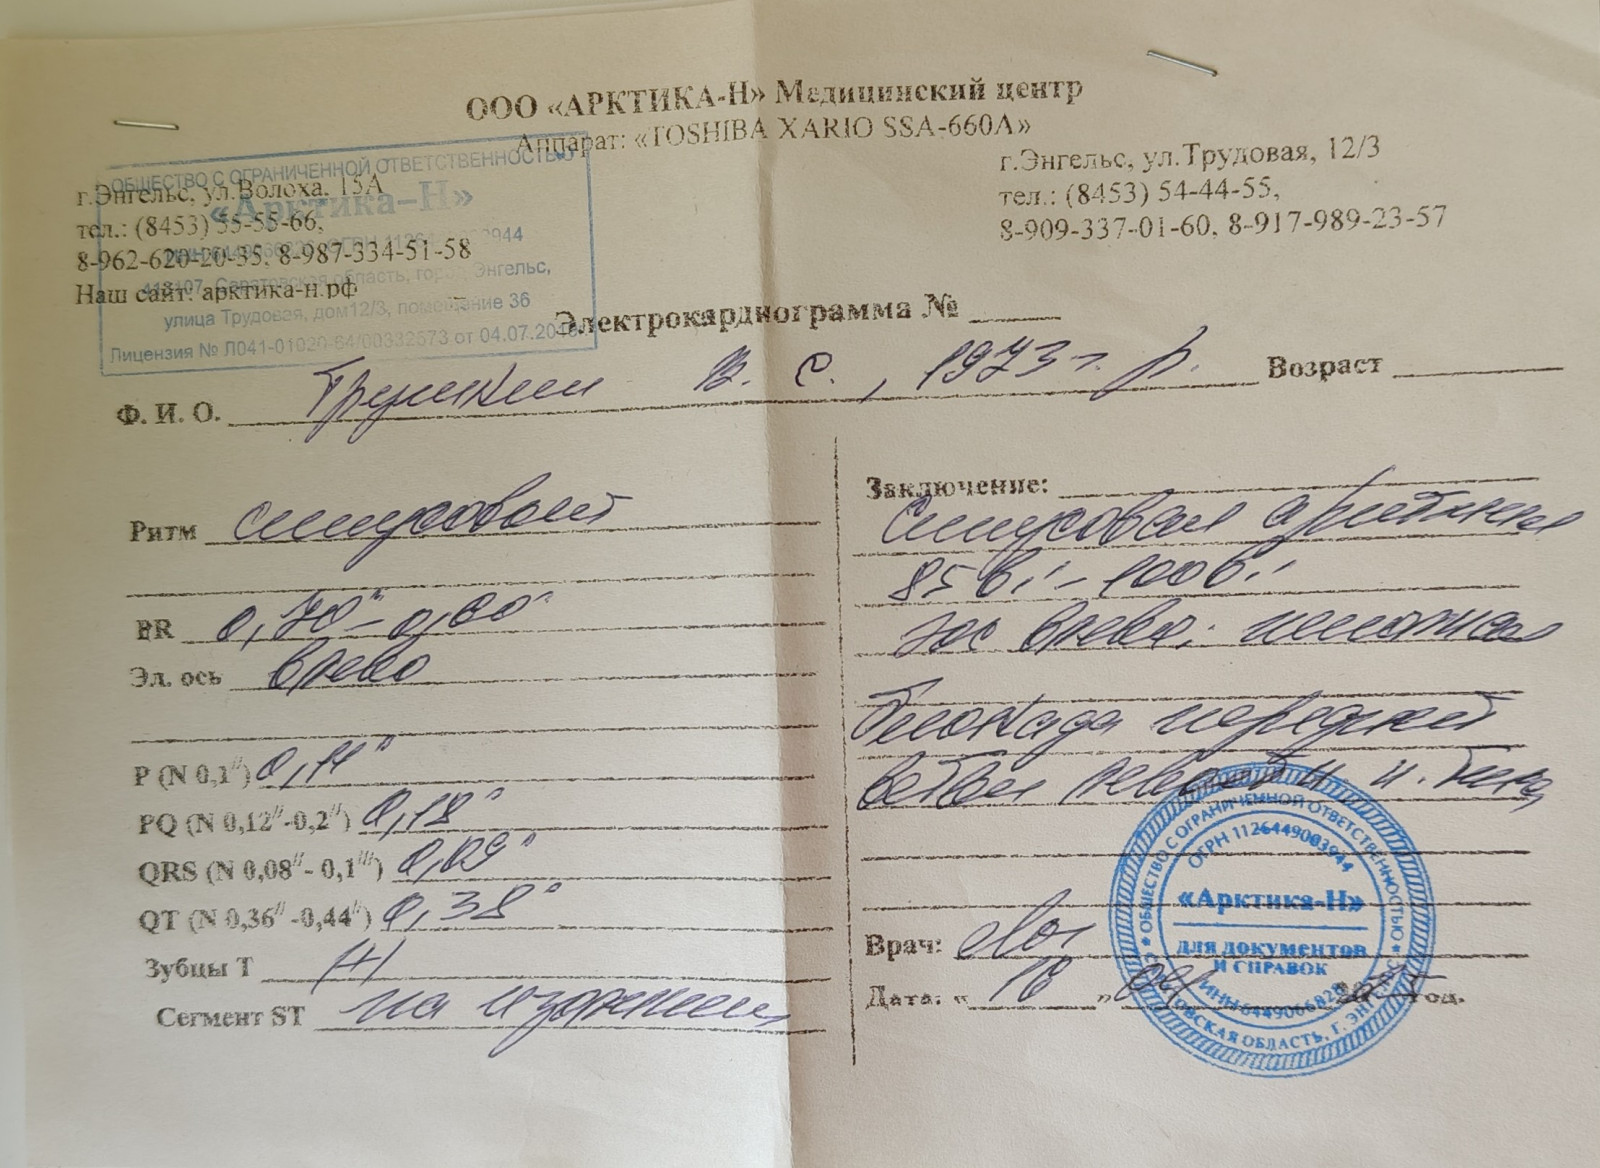 ООО «АРКТИКА-Н» Медицинский центр
Аппарат: «TOSHIBA XARIO SSA-660A»
г.Энгельс, ул.Волоха, 15А
тел.: (8453) 55-55-66,
8-962-620-20-35, 8-987-334-51-58
Наш сайт: арктика-н.рф
г.Энгельс, ул.Трудовая, 12/3
тел.: (8453) 54-44-55,
8-909-337-01-60, 8-917-989-23-57
ОБЩЕСТВО С ОГРАНИЧЕННОЙ ОТВЕТСТВЕННОСТЬЮ
«Арктика–Н»
413107, Саратовская область, город Энгельс,
улица Трудовая, дом12/3, помещение 36
Лицензия № Л041-01020-64/00332573 от 04.07.2018
Электрокардиограмма № ____
Ф. И. О. В. С., 1973 г. р. Возраст
Ритм синусовый
RR 0,70"- 0,60"
Эл. ось влево
P (N 0,1") 0,11"
PQ (N 0,12"-0,2") 0,18"
QRS (N 0,08"- 0,1") 0,09"
QT (N 0,36"-0,44") 0,38"
Зубцы T (+)
Сегмент ST на изолинии
Заключение:
Синусовая аритмия
85 в1'- 100 в1'
ЭОС влево; неполная
блокада передней
ветви левой н. п. Гиса
Врач:
Дата: « 18 » год.
ОБЩЕСТВО С ОГРАНИЧЕННОЙ ОТВЕТСТВЕННОСТЬЮ
ОГРН 1126449003944
«Арктика-Н»
ДЛЯ ДОКУМЕНТОВ
И СПРАВОК
ИНН 644906682
ОБЛАСТЬ, Г.